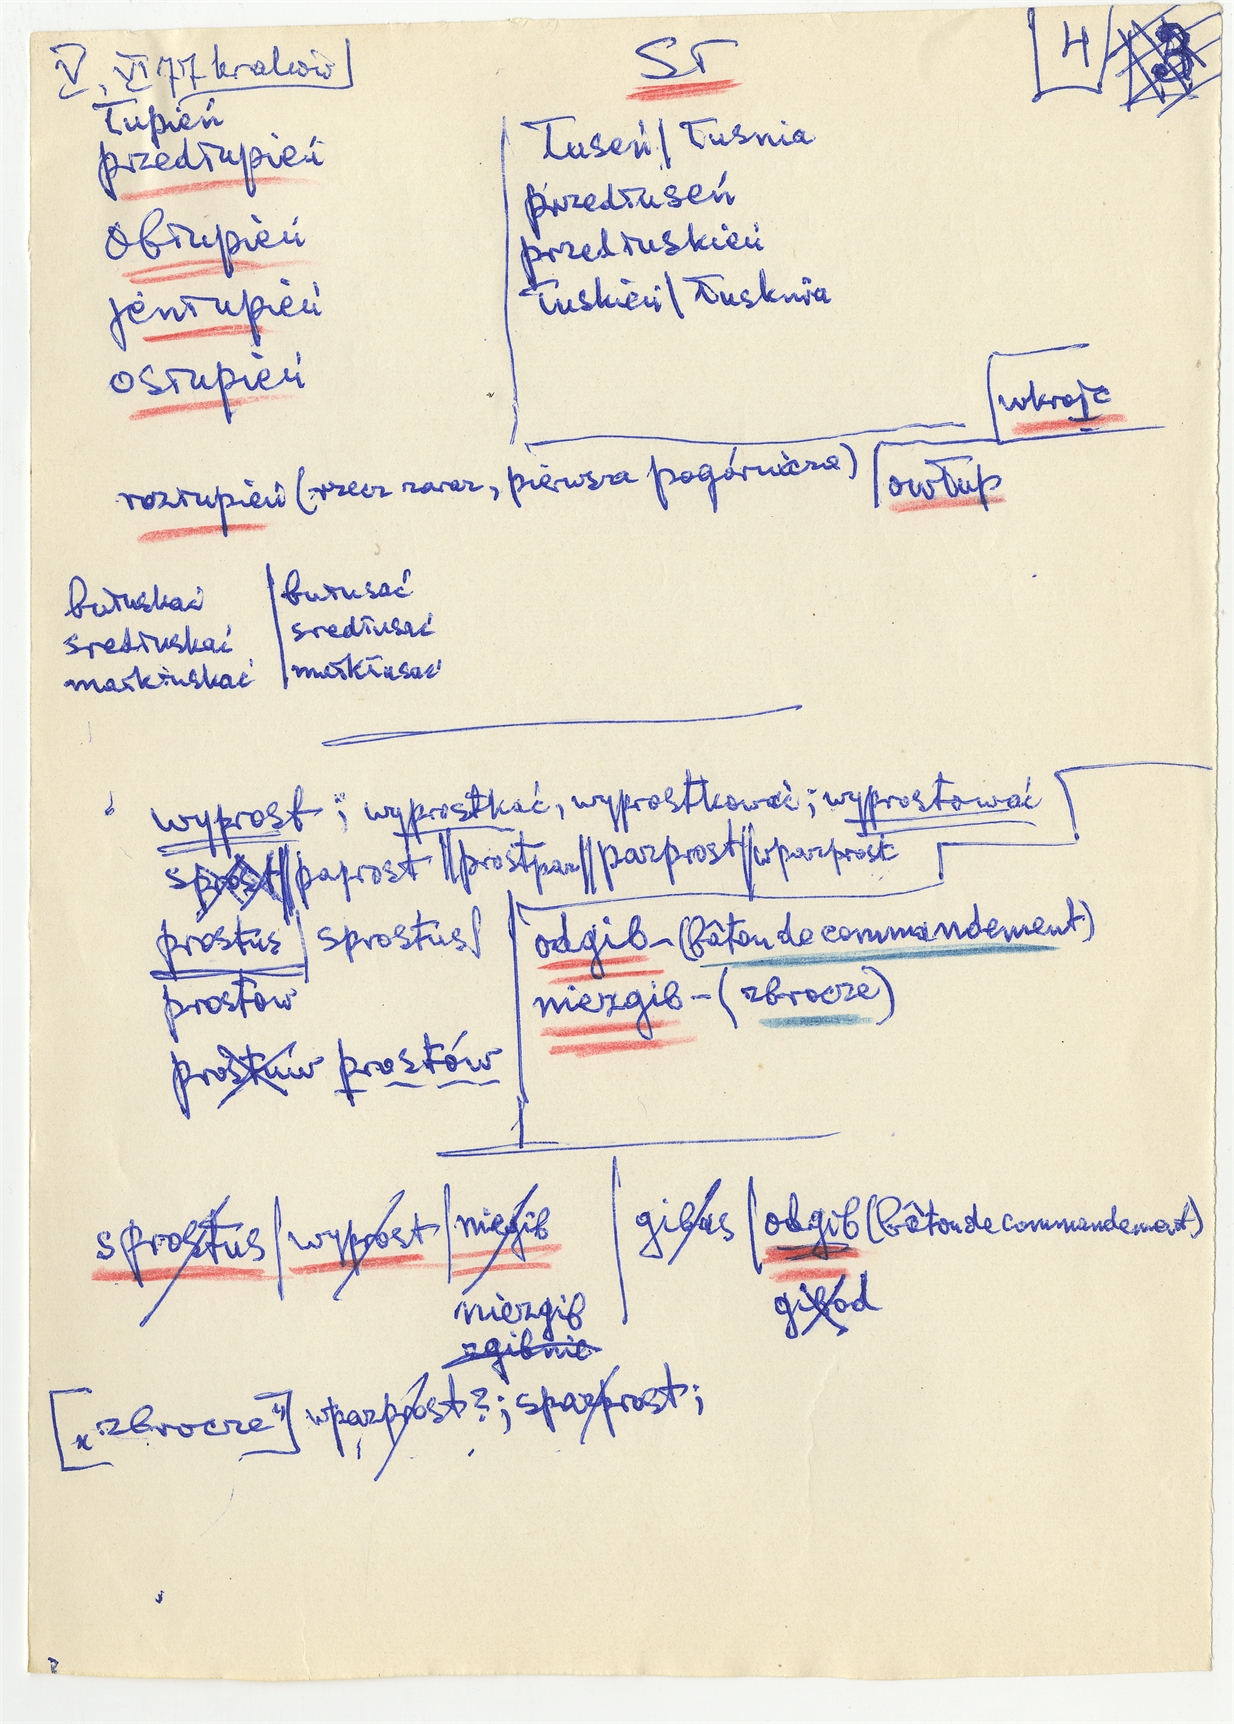 V, VI 77 Kraków
SŁ
4 3
łupień
przedłupień
obłupień
jenłupień
osłupień
łuseń / łusnia
przedłuseń
przedłuskień
łuskień / łusknia
wkrojc
rozłupień (rzecz zaraz, pierwsza pogórnicza)
owłup
bułuskać
bułusać
sredłuskać
sredłusać
małkłuskać
małkłusać
wyprost; wyprostkać, wyprostkować; wyprostować
sprost || paprost || prostpaz || pazprost || wpazprost
prostus / sprostus /
prostow
prostuw prostów
odgib - (bâton de commandement)
niezgib - (zbrocze)
sprostus / wyprost / niegib / gibus / odgib (bâton de commandement)
niezgib
zgibnie
gibod
[„zbrocze”] wpazprost?; spazprost;